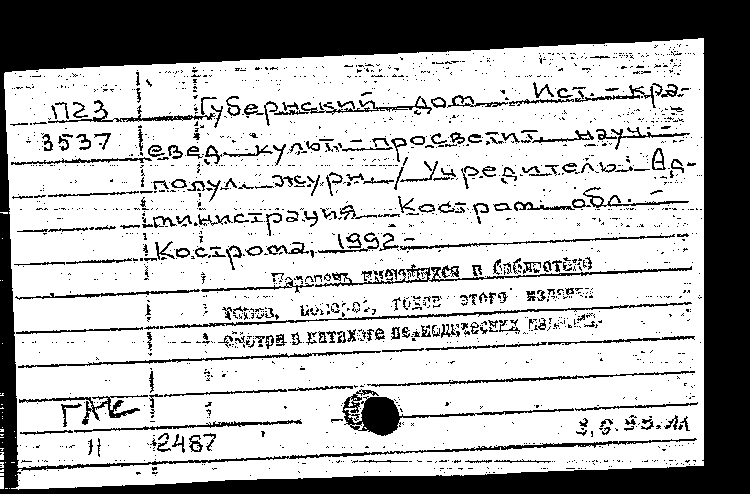 П23 Губернский дом : Ист. - кра-
3537 евед. культ. - просветит. науч. -
попул. журн. / Учредитель: Ад-
министрация Костром. обл. -
Кострома, 1992 -
Перечень имеющихся в библиотеке
томов, номеров, годов этого издания
смотри в каталоге периодических изданий.
ГАК
11 2487